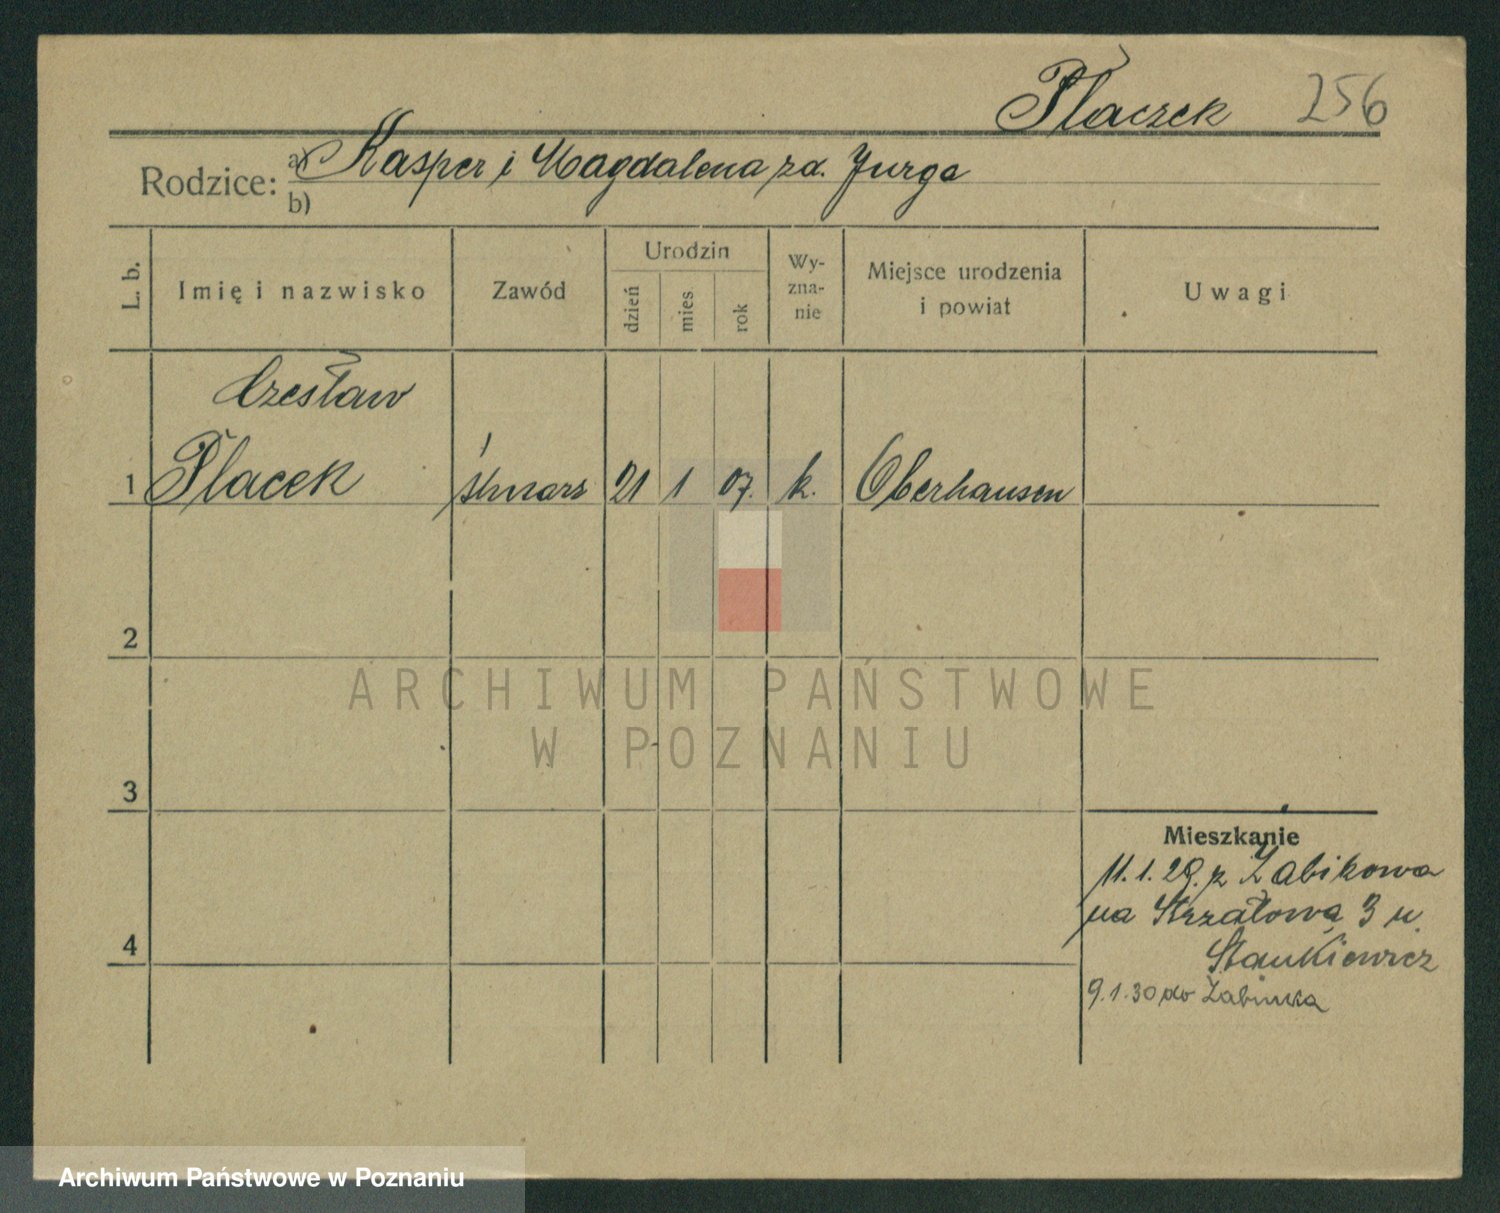 Płaczek 256
Rodzice: a) Kasper i Magdalena zd. Jurga
b)
L. b. Imię i nazwisko Zawód Urodzin dzień mies. rok Wy-zna-nie Miejsce urodzenia i powiat Uwagi
Czesław
1 Płacek ślusarz 21 1 07. k. Oberhausen
2
3
4
Mieszkanie
11.1.29. z Żabikowa
na Strzałową 3 u
Stankiewicz
9.1.30 do
ARCHIWUM PAŃSTWOWE
W POZNANIU
Archiwum Państwowe w Poznaniu